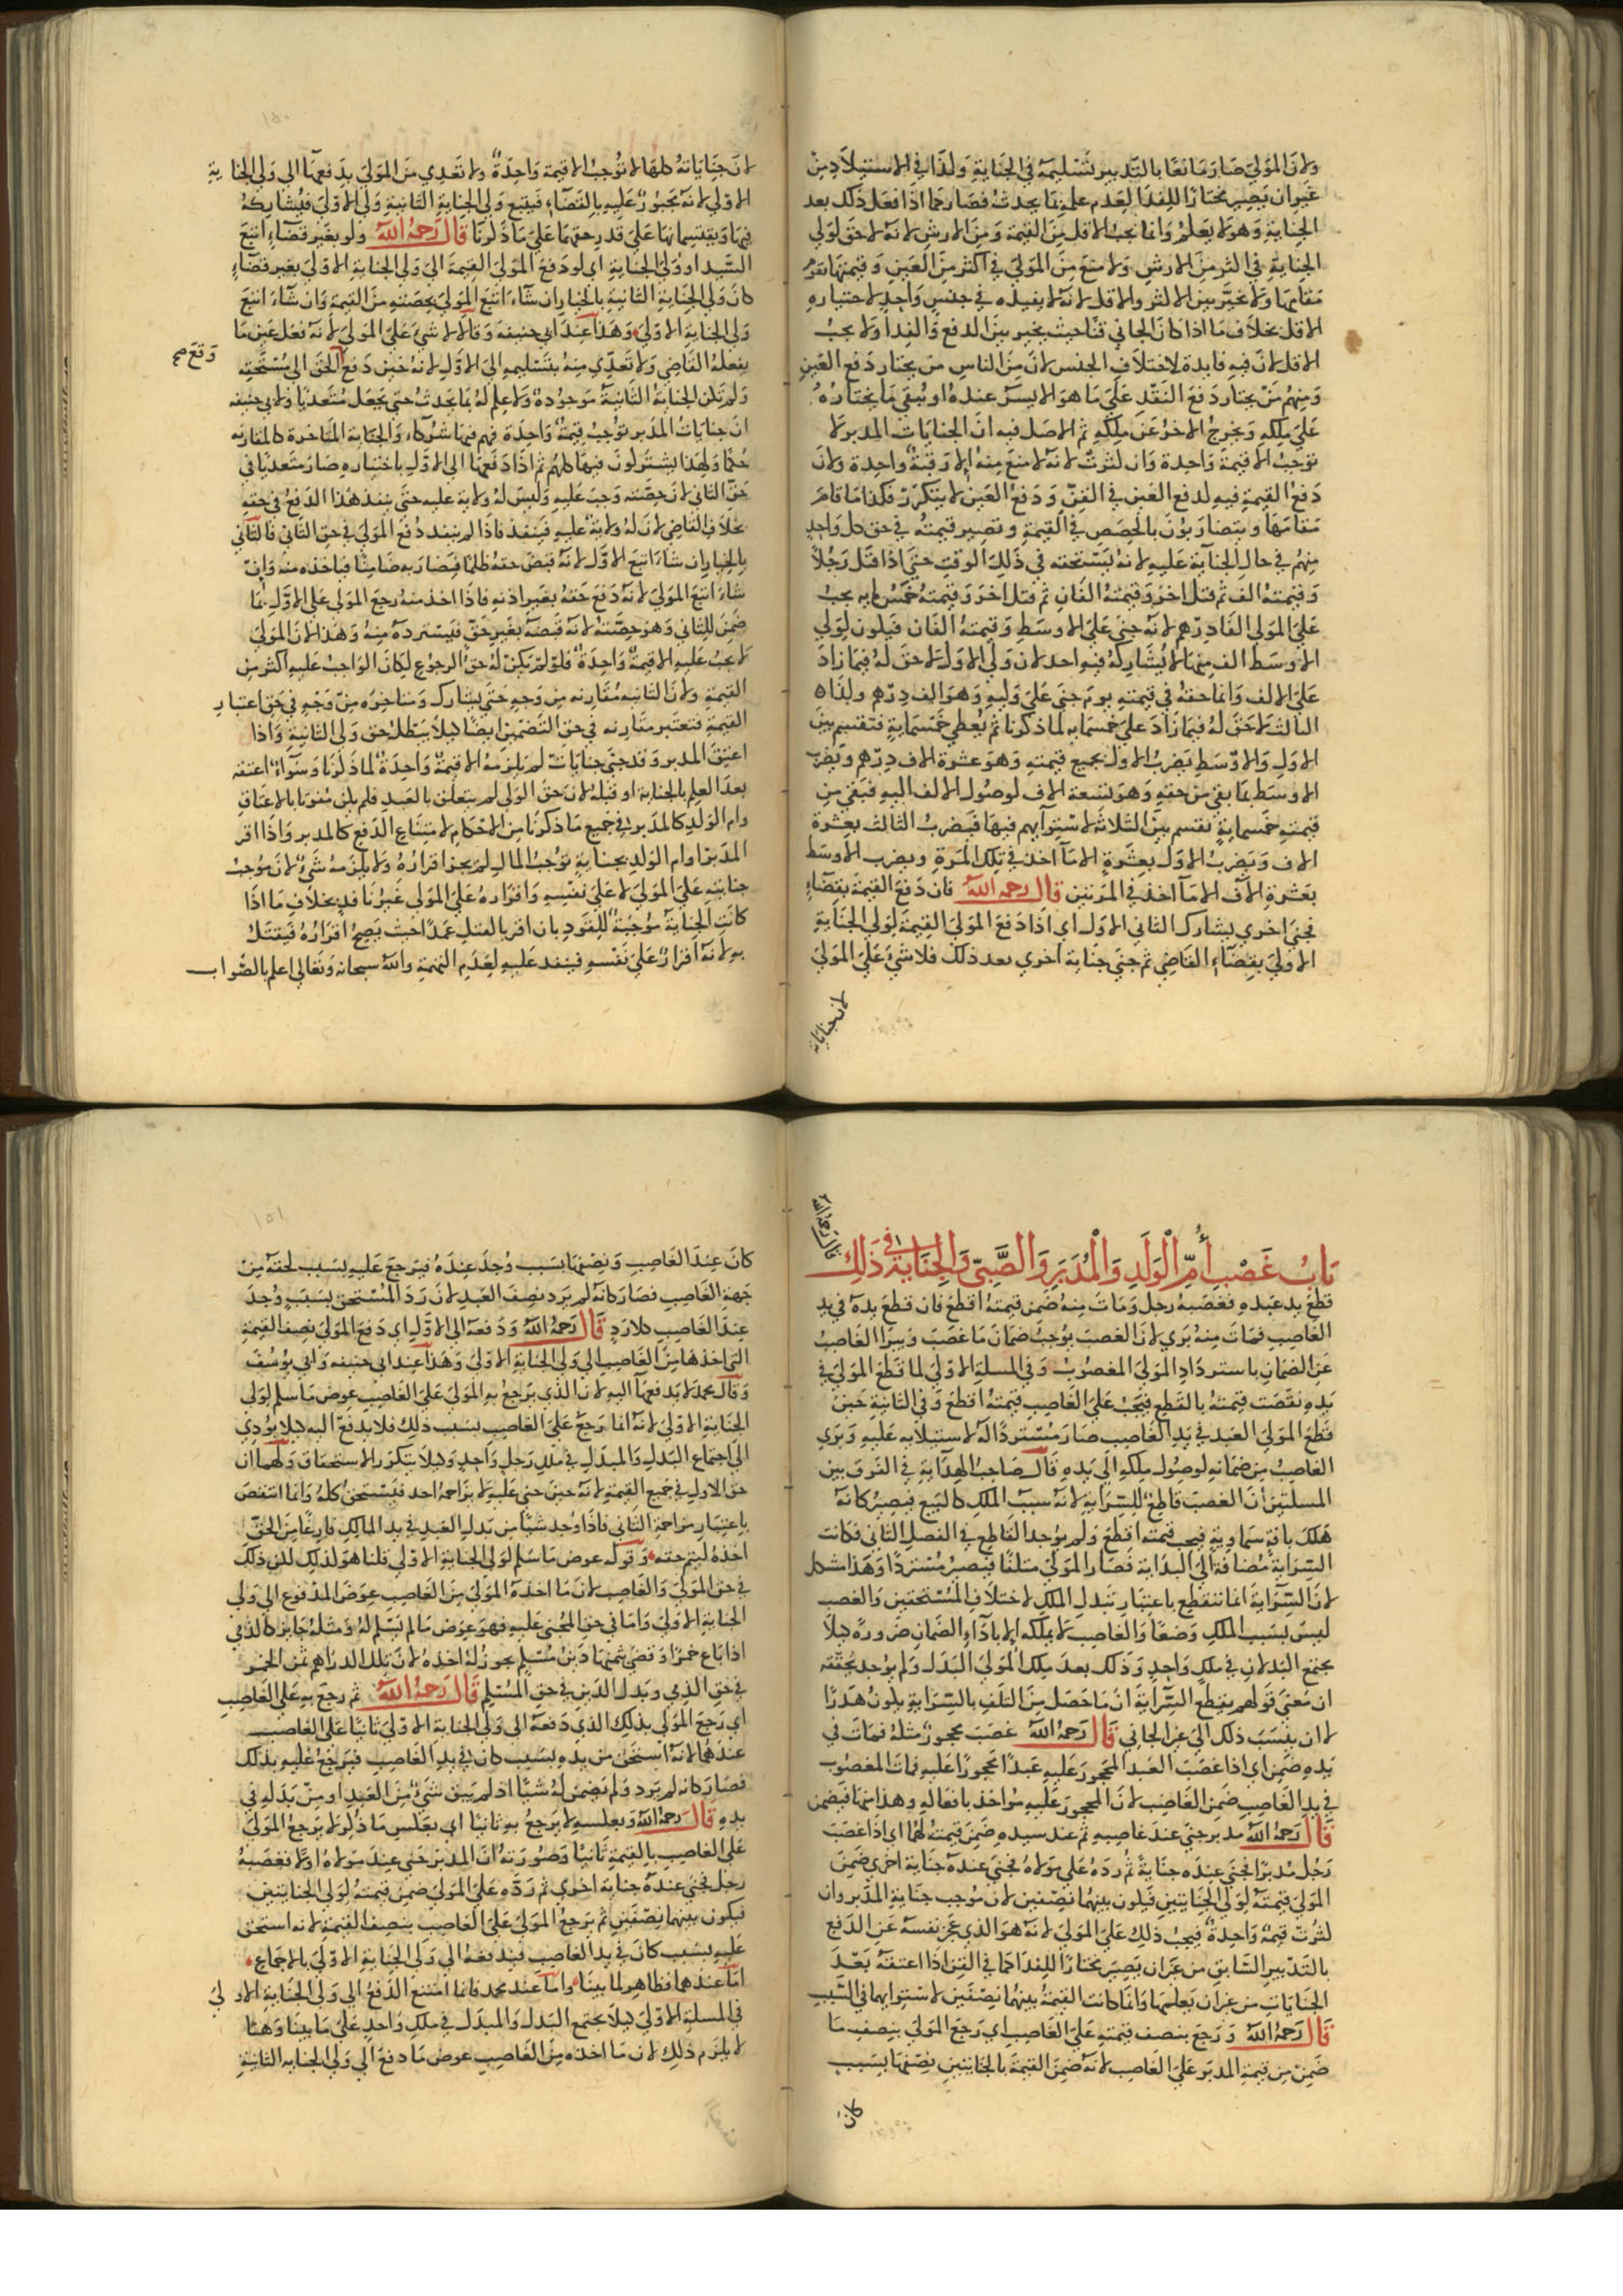 ولان المولى صار مانعا بالتدبير تسليمه في الجناية وكذا في الاستيلاد من
غير ان يصير مختارا للفداء لعدم علمه بما يحدث فصار كما اذا فعل ذلك بعد
الجناية وهو لا يعلم وانما يجب الاقل من القيمة ومن الارش لانه لا حق لولي
الجناية في اكثر من الارش ولا منع من المولى في اكثر من العين وقيمتها تقوم
مقامها ولا يخير بين الاكثر والاقل لانه لا يفيده في جنس واحد لاختياره
الاقل بخلاف ما اذا كان الجاني قنا حيث يخير بين الدفع والفداء ولا يجب
الاقل لان فيه فايدة لاختلاف الجنس لان من الناس من يختار دفع العين
ومنهم من يختار دفع النقد على ما هو الايسر عنده او يبقي ما يختاره
على ملكه ويخرج الاخر عن ملكه ثم الاصل فيه ان الجنايات المدبر لا
توجب الا قيمة واحدة وان كثرت لانه لا منع منه الا رقبة واحدة ولان
دفع القيمة فيه كدفع العين في القن ودفع العين لا يتكرر فكذا ما قام
مقامها ويتضاربون بالحصص في القيمة وتصير قيمته في حق كل واحد
منهم في حال الجناية عليه لانه يستحقه في ذلك الوقت حتى اذا قتل رجلا
وقيمته الف ثم قتل اخر وقيمته الفان ثم قتل اخر وقيمته خمسمايه يجب
على المولى الفا درهم لانه جنى على الاوسط وقيمته الفان فيكون لولي
الاوسط الف منها لا يشاركه فيه احد لان ولي الاول لا حق له فيما زاد
على الالف وانما حقه في قيمته يوم جنى على وليه وهو الف درهم وكذا
الثالث لا حق له فيما زاد على خمسمايه لما ذكرنا ثم يعطي خمسماية فتقسم بين
الاول والاوسط يضرب الاول بجميع قيمته وهو عشرة الاف درهم ويضرب
الاوسط بما بقي من حقه وهو تسعة الاف لوصول الالف اليه فبقي من
قيمته خمسماية تقسم بين الثلاثه لاستوايهم فيها فيضرب الثالث بعشرة
الاف ويضرب الاول بعشرة الا ما اخذ في تلك المرة ويضرب الاوسط
بعشرة الاف الا ما اخذ في المرتين قال رحمه الله فان دفع القيمة بقضاء
فجنى اخرى يشارك الثاني الاول اي اذا دفع المولى القيمة لولي الجناية
الاولى بقضاء القاضي ثم جنى جناية اخرى بعد ذلك فلا شيء على المولى
لان جناياته
لان جناياته كلها لا توجب الا قيمة واحدة ولا تعدي من المولى بدفعها الى ولي الجناية
الاولى لانه مجبور عليه بالقضاء فيتبع ولي الجناية الثانية ولي الاولى فيشاركه
فيها ويقتسمانها على قدر حقهما على ما ذكرنا قال رحمه الله ولو بغير قضاء اتبع
السيد او ولي الجناية اي لو دفع المولى القيمة الى ولي الجناية الاولى بغير قضاء
كان ولي الجناية الثانية بالخيار ان شاء اتبع المولى بحصته من القيمة وان شاء اتبع
ولي الجناية الاولى وهذا عند ابي حنيفة وقالا لا شيء على المولى لانه فعل عين ما
يفعله القاضي ولا تعدي منه بتسليمه الى الاول لانه حين دفع الحق الى مستحقه
وقع صح
ولم تكن الجناية الثانية موجودة ولا علم له بما يحدث حتى يجعل متعديا ولابي حنيفه
ان جنايات المدبر توجب قيمة واحدة فهم فيها شركاء والجناية المتاخرة كالمقارنه
حكما ولهذا يشتركون فيها كلهم ثم اذا دفعها الى الاول باختياره صار متعديا في
حق الثاني لان حصته وجب عليه وليس له ولاية عليه حتى ينفذ هذا الدفع في حقه
بخلاف القاضي لان له ولاية عليه فينفذ فاذا لم ينفذ دفع المولى في حق الثاني فالثاني
بالخيار ان شاء اتبع الاول لانه قبض حقه ظلما فصار به ضامنا فياخذه منه وان
شاء اتبع المولى لانه دفع حقه بغير اذنه فاذا اخذ منه رجع المولى على الاول بما
ضمن للثاني وهو حصته لانه قبضه بغير حق فيسترده منه وهذا لان المولى
لا يجب عليه الا قيمة واحدة فلو لم يكن له حق الرجوع لكان الواجب عليه اكثر من
القيمة ولان الثانيه مقارنه من وجه حتى يشارك ومتاخره من وجه في حق اعتبار
القيمة فتعتبر مقارنه في حق التضمين ايضا كيلا يبطل حق ولي الثانية واذا
اعتق المدبر وقد جنى جنايات لم يلزمه الا قيمة واحدة لما ذكرنا وسواء اعتقه
بعد العلم بالجناية او قبله لان حق الولي لم يتعلق بالعبد فلم يكن مفوتا بالاعتاق
وام الولد كالمدبر في جميع ما ذكرنا من الاحكام لامتناع الدفع كالمدبر واذا اقر
المدبر او ام الولد بجناية توجب المال لم يجز اقراره ولا يلزمه شيء لان موجب
جنايته على المولى لا على نفسه واقراره على المولى غير نافذ بخلاف ما اذا
كانت الجناية موجبة للقود بان اقر بالقتل عمدا حيث يصح اقراره فيقتل
به لانه اقرار على نفسه فينفذ عليه لعدم التهمة والله سبحانه وتعالى اعلم بالصواب
باب غصب أم الولد والمدبر والصبي والجناية في ذلك
قطع يد عبده فغصبه رجل ومات منه ضمن قيمته اقطع فان قطع يده في يد
الغاصب فمات منه بري لان الغصب يوجب ضمان ما غصب ويبرا الغاصب
عن الضمان باسترداد المولى المغصوب وفي المسلة الاولى لما قطع المولى في
يده نقصت قيمته بالقطع فيجب على الغاصب قيمته اقطع وفي الثانية حين
قطع المولى العبد في يد الغاصب صار مستردا له لاستيلايه عليه وبري
الغاصب من ضمانه لوصول ملكه الى يده قال صاحب الهداية في الفرق بين
المسلتين ان الغصب قاطع للسراية لانه سبب الملك كالبيع فيصير كانه
هلك بافة سماوية فيجب قيمته اقطع ولم يوجد القاطع في الفصل الثاني فكانت
السراية مضافة الى البداية فصار المولى متلفا فيصير مستردا وهذا مشكل
لان السراية انما تنقطع باعتبار تبدل الملك لاختلاف المستحقين والغصب
ليس بسبب الملك وضعا والغاصب لا يملكه الا باداء الضمان ضرورة كيلا
يجتمع البدلان في ملك واحد وذلك بعد ملك المولى البدل ولم يوجد تحققه
ان معنى قولهم يقطع السراية ان ما حصل من التلف بالسراية يكون هدرا
لا ان ينسب ذلك الى غير الجاني قال رحمه الله غصب محجور مثله فمات في
يده ضمن اي اذا غصب العبد المحجور عليه عبدا محجورا عليه فمات المغصوب
في يد الغاصب ضمن الغاصب لان المحجور عليه مواخذ بافعاله وهذا منها فيضمن
قال رحمه الله مدبر جنى عند غاصبه ثم عند سيده ضمن قيمته لهما اي اذا غصب
رجل مدبرا فجنى عنده جناية ثم رده على مولاه فجنى عنده جناية اخرى ضمن
المولى قيمته لولي الجنايتين فيكون بينهما نصفين لان موجب جناية المدبر وان
كثرت قيمة واحدة فيجب ذلك على المولى لانه هو الذي عجز نفسه عن الدفع
بالتدبير السابق من غير ان يصير مختارا للفداء كما في القن اذا اعتقه بعد
الجنايات من غير ان يعلمها وانما كانت القيمة بينهما نصفين لاستوايهما في السبب
قال رحمه الله ورجع بنصف قيمته على الغاصب اي رجع المولى بنصف ما
ضمن من قيمة المدبر على الغاصب لانه ضمن القيمة بالجنايتين نصفها بسبب
كان
كان عند الغاصب ونصفها بسبب وجد عنده فيرجع عليه بسبب لحقه من
جهة الغاصب فصار كانه لم يرد نصف العبد لان رد المستحق بسبب وجد
عند الغاصب كلا رد قال رحمه الله ودفعه الى الاول اي دفع المولى نصف القيمة
التي اخذها من الغاصب الى ولي الجناية الاولى وهذا عند ابي حنيفه وابي يوسف
وقال محمد لا يدفعها اليه لان الذي يرجع به المولى على الغاصب عوض ما سلم لولي
الجناية الاولى لانه انما رجع على الغاصب بسبب ذلك فلا يدفع اليه كيلا يودي
الى اجتماع البدل والمبدل في ملك رجل واحد وكيلا يتكرر الاستحقاق ولهما ان
حق الاول في جميع القيمة لانه حين جنى عليه لا يزاحمه احد فيستحق كله وانما انتقص
باعتبار مزاحمة الثاني فاذا وجد شيا من بدل العبد في يد المالك فارغا من الحق
اخذه ليتم حقه وقوله عوض ما سلم لولي الجناية الاولى قلنا هو كذلك لكن ذلك
في حق المولى والغاصب لان ما اخذه المولى من الغاصب عوض المدفوع الى ولي
الجناية الاولى واما في حق المجني عليه فهو عوض ما لم يسلم له ومثله جايز كالذمي
اذا باع خمرا وقضى ثمنها دين مسلم يجوز له اخذه لان تلك الدراهم ثمن الخمر
في حق الذمي وبدل الدين في حق المسلم قال رحمه الله ثم رجع به على الغاصب
اي رجع المولى بذلك الذي دفعه الى ولي الجناية الاولى ثانيا على الغاصب
عندهما لانه استحق من يده بسبب كان في يد الغاصب فيرجع عليه بذلك
فصار كانه لم يرد ولم يضمن له شيا اذ لم يبق شيء من العبد او من بدله في
يده قال رحمه الله وبعكسه لا يرجع به ثانيا اي بعكس ما ذكر لا يرجع المولى
على الغاصب بالقيمة ثانيا وصورته ان المدبر جنى عند مولاه اولا فغصبه
رجل فجنى عنده جناية اخرى ثم رده على المولى ضمن قيمته لولي الجنايتين
فيكون بينهما نصفين ثم يرجع المولى على الغاصب بنصف القيمة لانه استحق
عليه بسبب كان في يد الغاصب فيدفعه الى ولي الجناية الاولى بالاجماع
اما عندهما فظاهر لما بينا واما عند محمد فانما امتنع الدفع الى ولي الجناية الاولى
في المسلة الاولى كيلا يجتمع البدل والمبدل في ملك واحد على ما بينا وهنا
لا يلزم ذلك لان ما اخذه من الغاصب عوض ما دفع الى ولي الجنايه الثانية